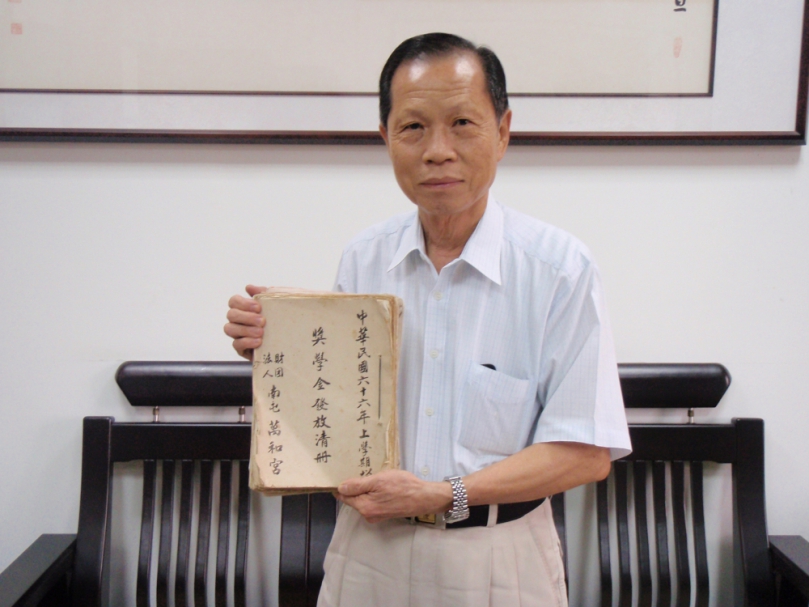 中華民國六十六年上學期
獎學金發放清冊
財團
法人
南屯萬和宮